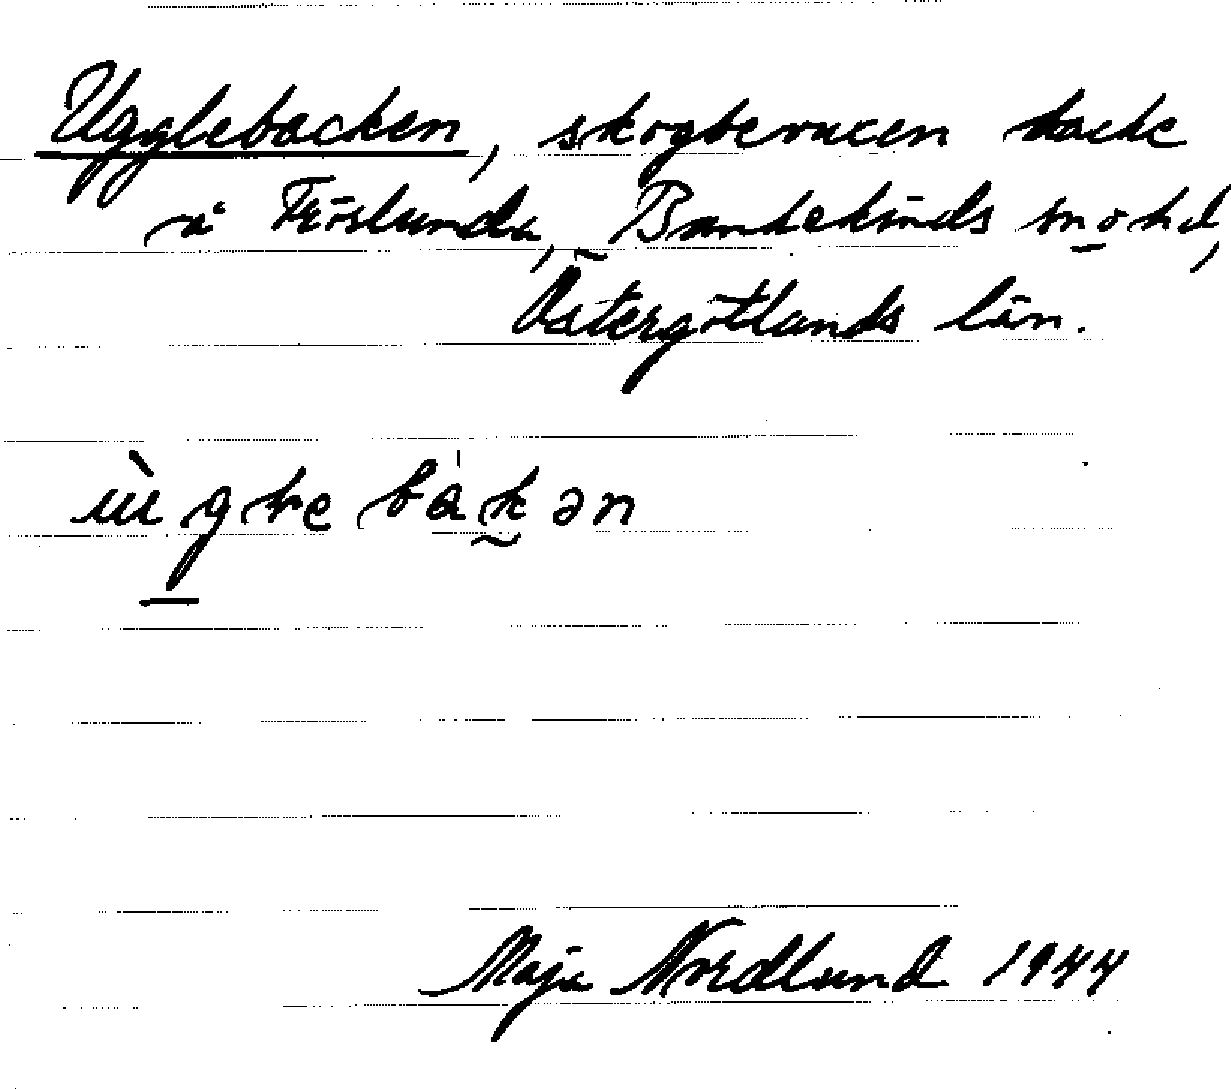 Ugglebacken, skogbevuxen backe
å Törslunda, Bankekinds sn o hd,
Östergötlands län.
Maja Nordlund 1944